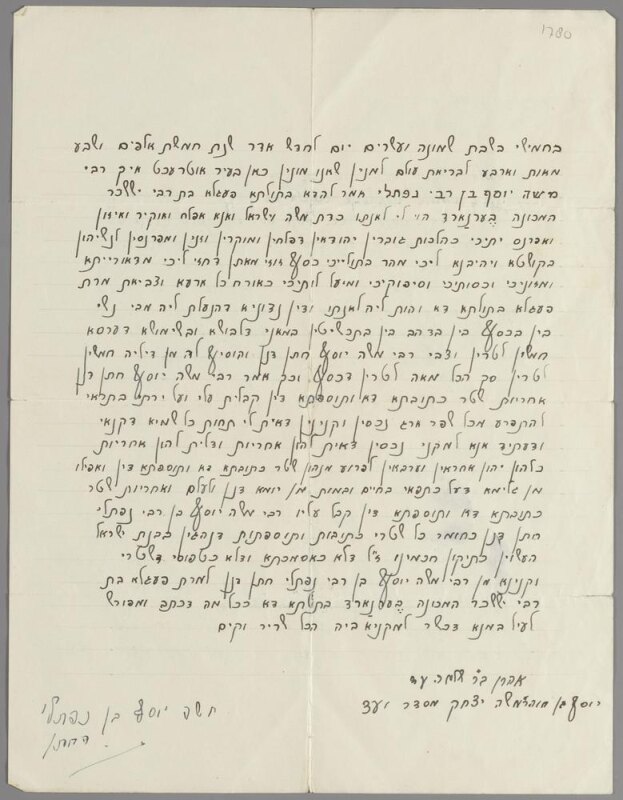 1780
בחמישי בשבת שמונה ועשרים יום לחדש אדר שנת חמשת אלפים ושבע
מאות וארבע לבריאת עולם למנין שאנו מונין כאן בעיר אוטרעכט איך רבי
משה יוסף בן רבי נפתלי אמר להדא בתולתא פעגלא בת רבי יששכר
המכונה בערנארד הוי לי לאנתו כדת משה וישראל ואנא אפלח ואוקיר ואיזון
ואפרנס יתיכי כהלכות גוברין יהודאין דפלחין ומוקרין וזנין ומפרנסין לנשיהון
בקושטא ויהיבנא ליכי מהר בתוליכי כסף זוזי מאתן דחזי ליכי מדאורייתא
ומזוניכי וכסותיכי וסיפוקיכי ומיעל לותיכי כאורח כל ארעא וצביאת מרת
פעגלא בתולתא דא והות ליה לאנתו ודין נדוניא דהנעלת ליה מבי נשי
בין בכסף בין בדהב בין בתכשיטין במאני דלבושא ובשימושא דערסא
חמשין לטרין וצבי רבי משה יוסף חתן דנן והוסיף לה מן דיליה חמשין
לטרין סך הכל מאה לטרין דכסף וכך אמר רבי משה יוסף חתן דנן
אחריות שטר כתובתא דא ותוספתא דין קבלית עלי ועל ירתי בתראי
להתפרע מכל שפר ארג נכסין וקנינין דאית לי תחות כל שמיא דקנאי
ודעתיד אנא למקני נכסין דאית להון אחריות ודלית להון אחריות
כלהון יהון אחראין וערבאין לפרוע מנהון שטר כתובתא דא ותוספתא דין ואפילו
מן גלימא דעל כתפאי בחיים ובמות מן יומא דנן ולעלם ואחריות שטר
כתובתא דא ותוספתא דין קבל עליו רבי משה יוסף בן רבי נפתלי
חתן דנן כחומר כל שטרי כתובות ותוספתות דנהגין בבנת ישראל
העשוין כתיקון חכמינו ז״ל דלא כאסמכתא ודלא כטופסי דשטרי
וקנינא מן רבי משה יוסף בן רבי נפתלי חתן דנן למרת פעגלא בת
רבי יששכר המכונה בערנארד בתולתא דא ככל מה דכתב ומפורש
לעיל במנא דכשר למקניא ביה הכל שריר וקים
אהרן ב״ר שלמה עד
יוסף בן משה יצחק מסדר ועד
משה יוסף בן נפתלי
החתן